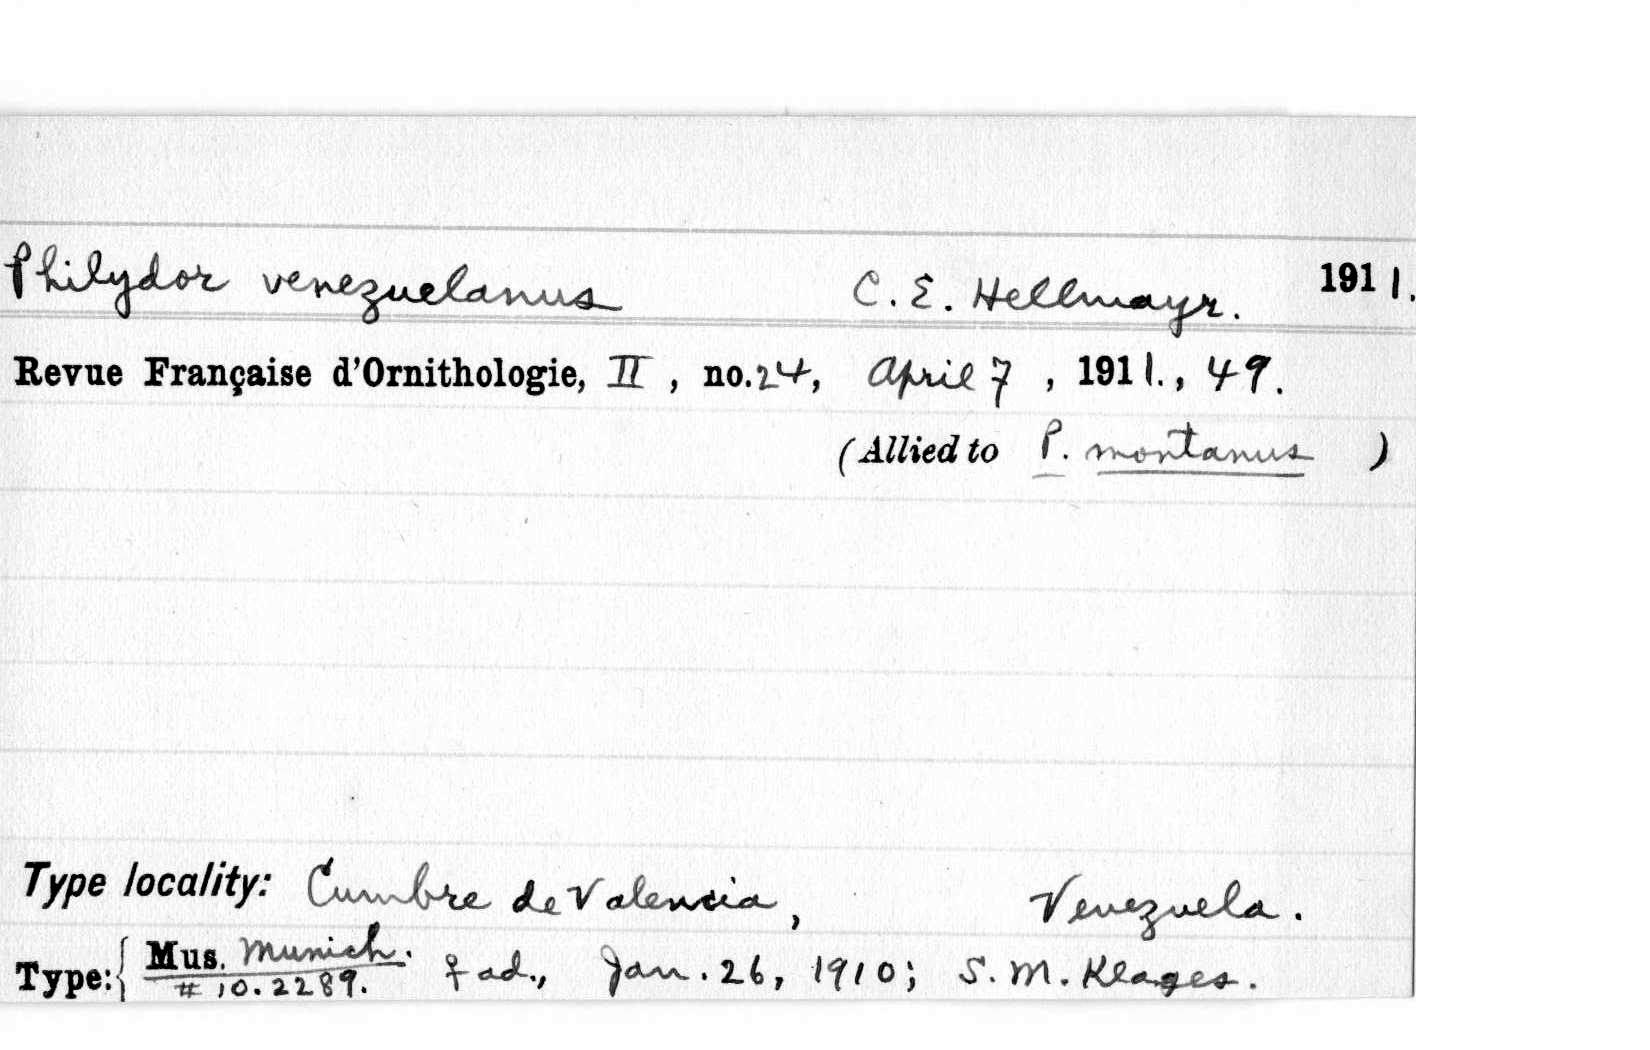 Philydor venezuelanus C. E. Hellmayr. 1911.
Revue Française d'Ornithologie, II, no. 24, April 7, 1911., 49.
(Allied to P. montanus)
Type locality: Cumbre de Valencia, Venezuela.
Type: { Mus. Munich. ♀ ad., Jan. 26, 1910; S. M. Klages.
# 10.2289.